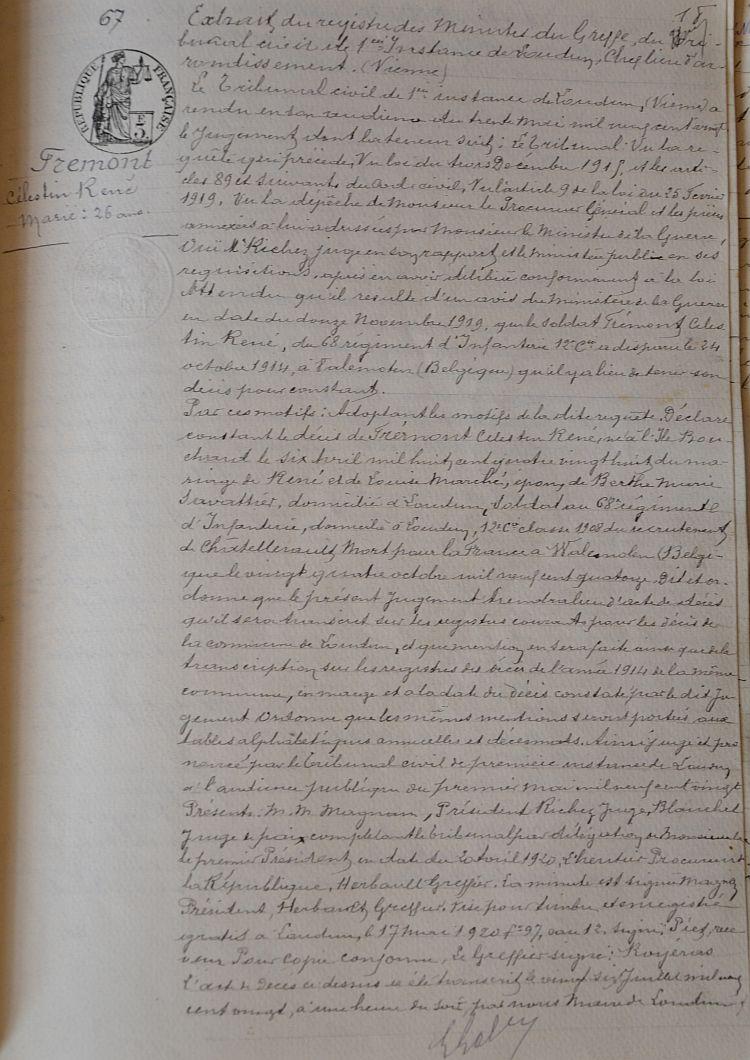 67
18
Extrait du registre des Minutes du Greffe, du Tri-
bunal civil de 1ere Instance de Loudun, Chef lieu d'ar-
rondissement. (Vienne)
RÉPUBLIQUE FRANÇAISE
Fremont
Célestin René
Marié : 26 ans.
Le Tribunal civil de 1ere instance de Loudun, (Vienne) a
rendu en son audience du trente Mai mil neuf cent vingt
le Jugement dont la teneur suit : Le Tribunal Vu la re-
quête qui précède, Vu loi du trois Décembre 1915, et les arti-
cles 89 et suivants du code civil, Vu l'article 9 de la loi du 25 Fevrier
1919, Vu la dépêche de Monsieur le Procureur Général et les pièces
annexées à lui adressées par Monsieur le Ministre de la Guerre,
Ouï Mr Richez juge en son rapport et le ministère public en ses
requisitions, après en avoir délibéré conformément à la loi
Attendu qu'il résulte d'un avis du Ministère de la Guerre
en date du douze Novembre 1919, que le soldat Frémont Céles-
tin René, du 68 régiment d'Infanterie 12e Cie a disparu le 24
octobre 1914, à Valemolen (Belgique) qu'il y a lieu de tenir son
décès pour constant.
Par ces motifs : Adoptant les motifs de la dite requête. Déclare
constant le décès de Frémont Célestin René, né à l'Ile Bou-
chard le six Avril mil huit cent quatre vingt huit du ma-
riage de René et de Louise Marché, époux de Berthe Marie
Savattier, domicilié à Loudun, Soldat au 68e régiment
d'Infanterie, domicilié à Loudun, 12e Cie classe 1908 du recrutement
de Châtellerault Mort pour la France à Walemolen (Belgi-
que le vingt quatre octobre mil neuf cent quatorze Dit et or-
donne que le présent Jugement tiendra lieu d'acte de décès
qu'il sera transcrit sur les registres courants pour les décès de
la commune de Loudun, et que mention en sera faite ainsi que de la
transcription sur les registres des décès de l'année 1914 de la même
commune, en marge et à la date du décès constaté par le dit Ju-
gement Ordonne que les mêmes mentions seront portées aux
tables alphabétiques annuelles et décennales. Ainsi jugé et pro
noncé par le tribunal civil de première instance de Loudun
a l'audience publique du premier mai mil neuf cent vingt
Présents : M.M. Magnan, Président Richez Juge, Blanchet
Juge de paix complétant le tribunal par délégation de Monsieur
le premier Président en date du 20 avril 1920, Procureur
la République, Herbault Greffier. La minute est signée Magnan
Président, Herbault Greffier. Visé pour timbre et enregistré
gratis à Loudun, le 17 mai 1920 fo 97, case 12, signé, Piet, rece
veur Pour copie conforme, Le Greffier signé :
L'acte de décès ci dessus a été transcrit le vingt six Juillet mil neuf
cent vingt, à une heure du soir, par nous Maire de Loudun